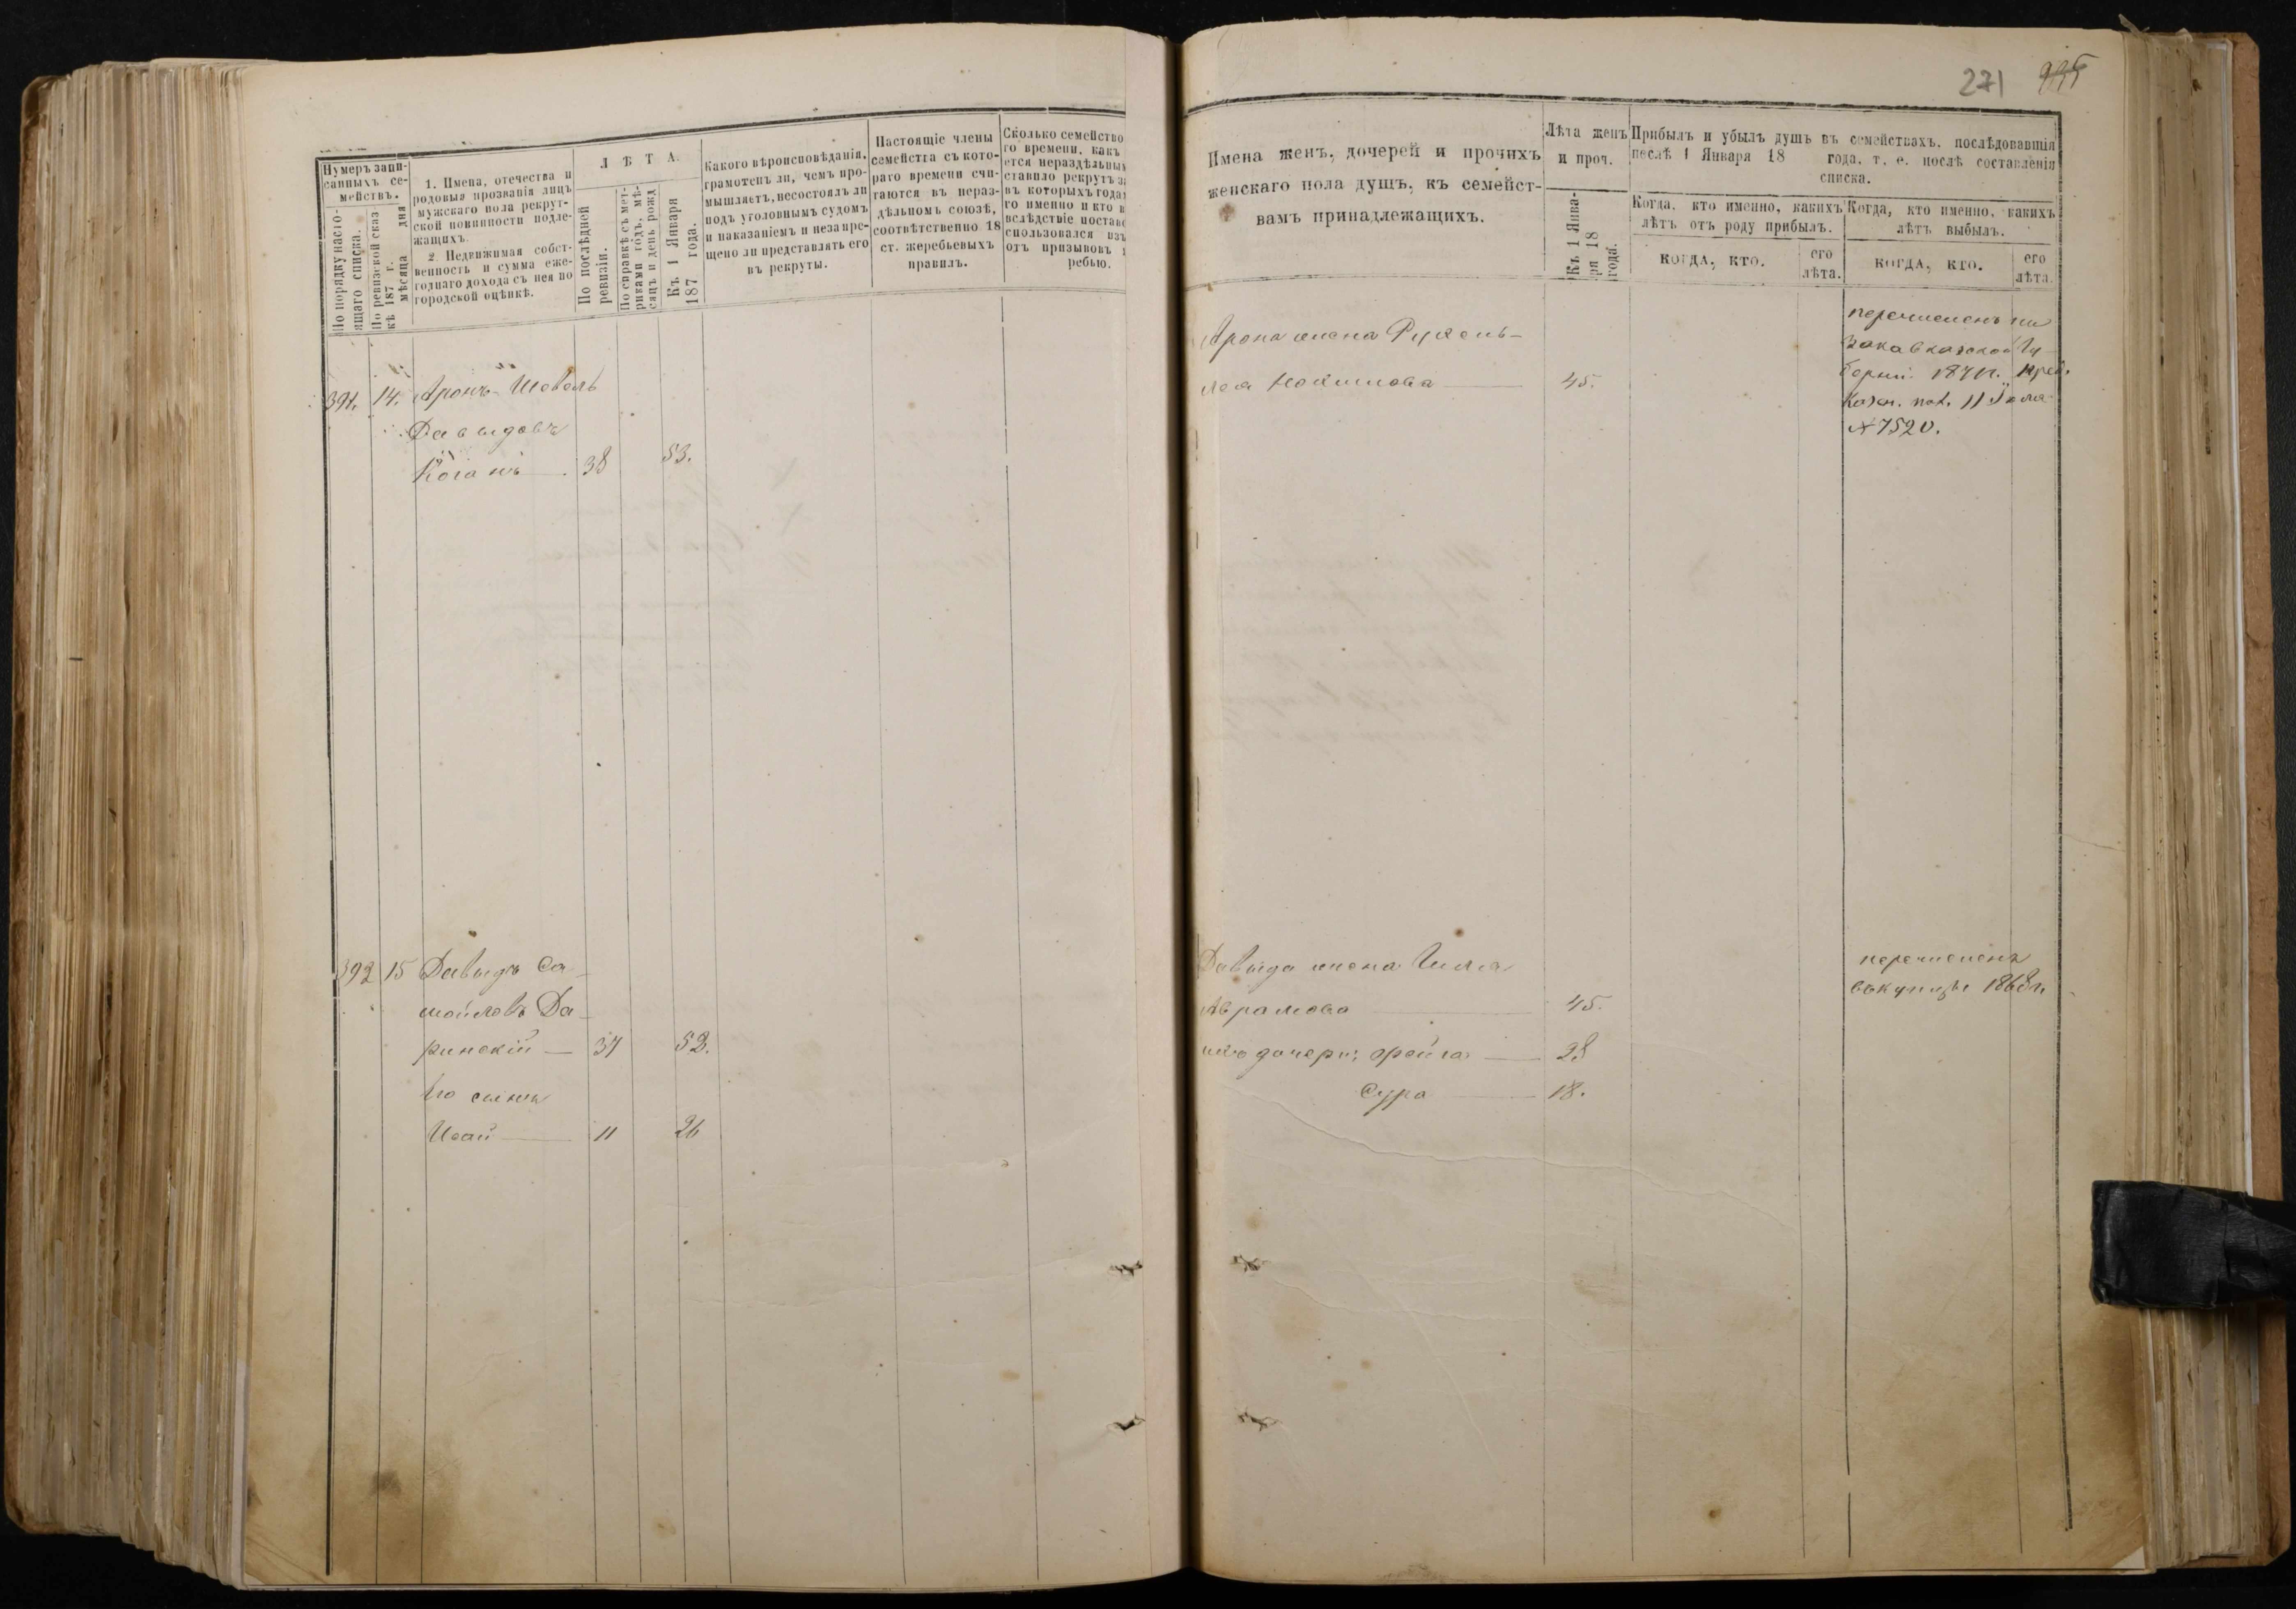 271
Нумеръ запи-
санныхъ се-
мействъ.
По порядку насто-
ящаго списка.
По ревизской сказ-
кѣ 187 г. дня
мѣсяца
1. Имена, отечества и
родовыя прозванія лицъ
мужскаго пола рекрут-
ской повинности подле-
жащихъ.
2. Недвижимая собст-
венность и сумма еже-
годнаго дохода съ нея по
городской оцѣнкѣ.
ЛѢТА.
По послѣдней
ревизіи.
По справкѣ съ мет-
риками годъ, мѣ-
сяцъ и день рожд
Къ 1 Января
187 года.
Какого вѣроисповѣданія,
грамотенъ ли, чемъ про-
мышляетъ, несостоялъ ли
подъ уголовнымъ судомъ
и наказаніемъ и незапре-
щено ли представлять его
въ рекруты.
Настоящіе члены
семейства съ кото-
раго времени счи-
таются въ нераз-
дѣльномъ союзѣ,
соотвѣтственно 18
ст. жеребьевыхъ
правилъ.
Сколько семейство
го времени, какъ
ется нераздѣльным
ставило рекрутъ за
въ которыхъ года
го именно и кто
вслѣдствіе постав
спользовался изъ
отъ призывовъ
ребью.
391. 14. Аронъ-Шевель
Давыдовъ
Коганъ 38 53.
392 15 Давыдъ Са-
мойловъ Да-
ринскій 37 52.
Его сынъ
Исай 11 26
Имена женъ, дочерей и прочихъ
женскаго пола душъ, къ семейст-
вамъ принадлежащихъ.
Лѣта женъ
и проч.
Къ 1 Янва-
ря 18
года.
Прибыль и убыль душъ въ семействахъ, послѣдовавшія
послѣ 1 Января 18 года, т. е. послѣ составленія
списка.
Когда, кто именно, какихъ
лѣтъ отъ роду прибылъ.
Когда, кто именно, какихъ
лѣтъ выбылъ.
КОГДА, КТО.
его
лѣта.
КОГДА, КТО.
его
лѣта.
Арона жена Рухень-
Лея 45.
перечисленъ по
Закавказской Гу-
берніи 1871г. пред.
Казен. пал. 11
№ 7520.
Давыда жена
Аврамова 45.
его дочери: Фрейга 28
Сура 18.
перечисленъ
въ купцы 1868г.